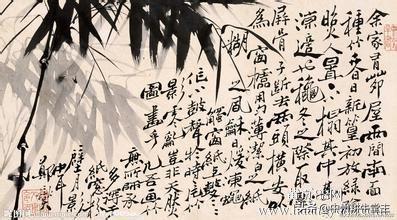 余家有茆屋兩間南面
種竹夏日新篁初放綠
陰照人置一小榻其中甚
涼適也秋冬之際取圍
屏骨子斷去兩頭橫安以
為窗櫺用勻薄潔白之紙
糊之風和日暖凍蠅觸
窗紙上鼕鼕
作小鼓聲於時一片竹
影零亂豈非天然
圖畫乎凡吾画竹
無所師承
多得於
紙窗粉
壁日光月影
中耳